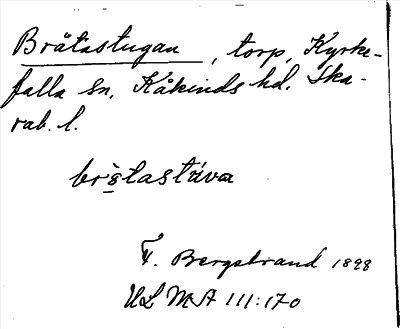 Bråtastugan, torp, Kyrke-
falla Sn, Kåkinds hd. Ska-
rab. l.
bròtastùva
F. Bergstrand 1898
ULMA 111:170